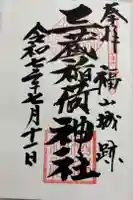 奉拝 福山城跡
三蔵稲荷神社
令和七年七月十二日